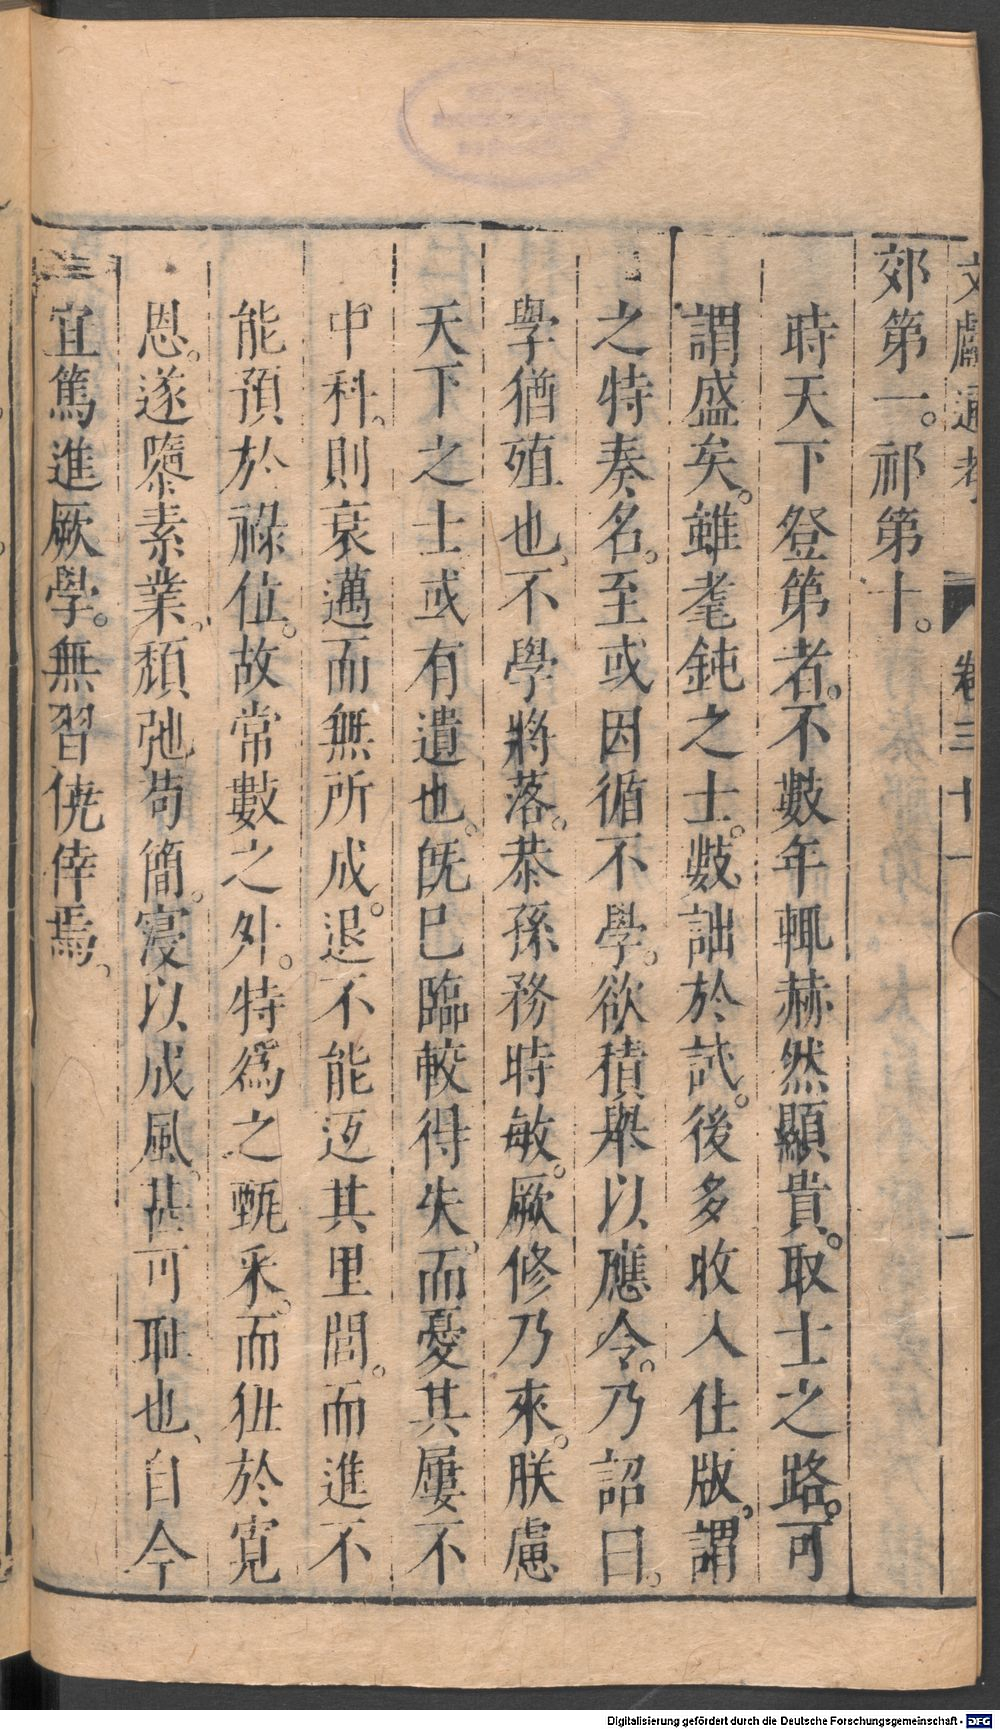 文獻通考 卷三十一 一
郊第一。祁第十。
時天下登第者。不數年輒赫然顯貴。取士之路。可
謂盛矣。雖耄鈍之士。數詘於試。後多收入仕版。謂
之特奏名。至或因循不學。欲積舉以應令。乃詔曰。
學猶殖也、不學將落。恭孫務時敏。厥修乃來。朕慮
天下之士或有遺也。旣已臨較得失、而憂其屢不
中科、則衰邁而無所成。退不能返其里閭。而進不
能預於祿位。故常數之外。特爲之甄采。而狃於寬
恩。遂隳素業、頹弛苟簡。寖以成風、甚可恥也、自今
宜篤進厥學。無習僥倖焉、
Digitalisierung gefördert durch die Deutsche Forschungsgemeinschaft - DFG